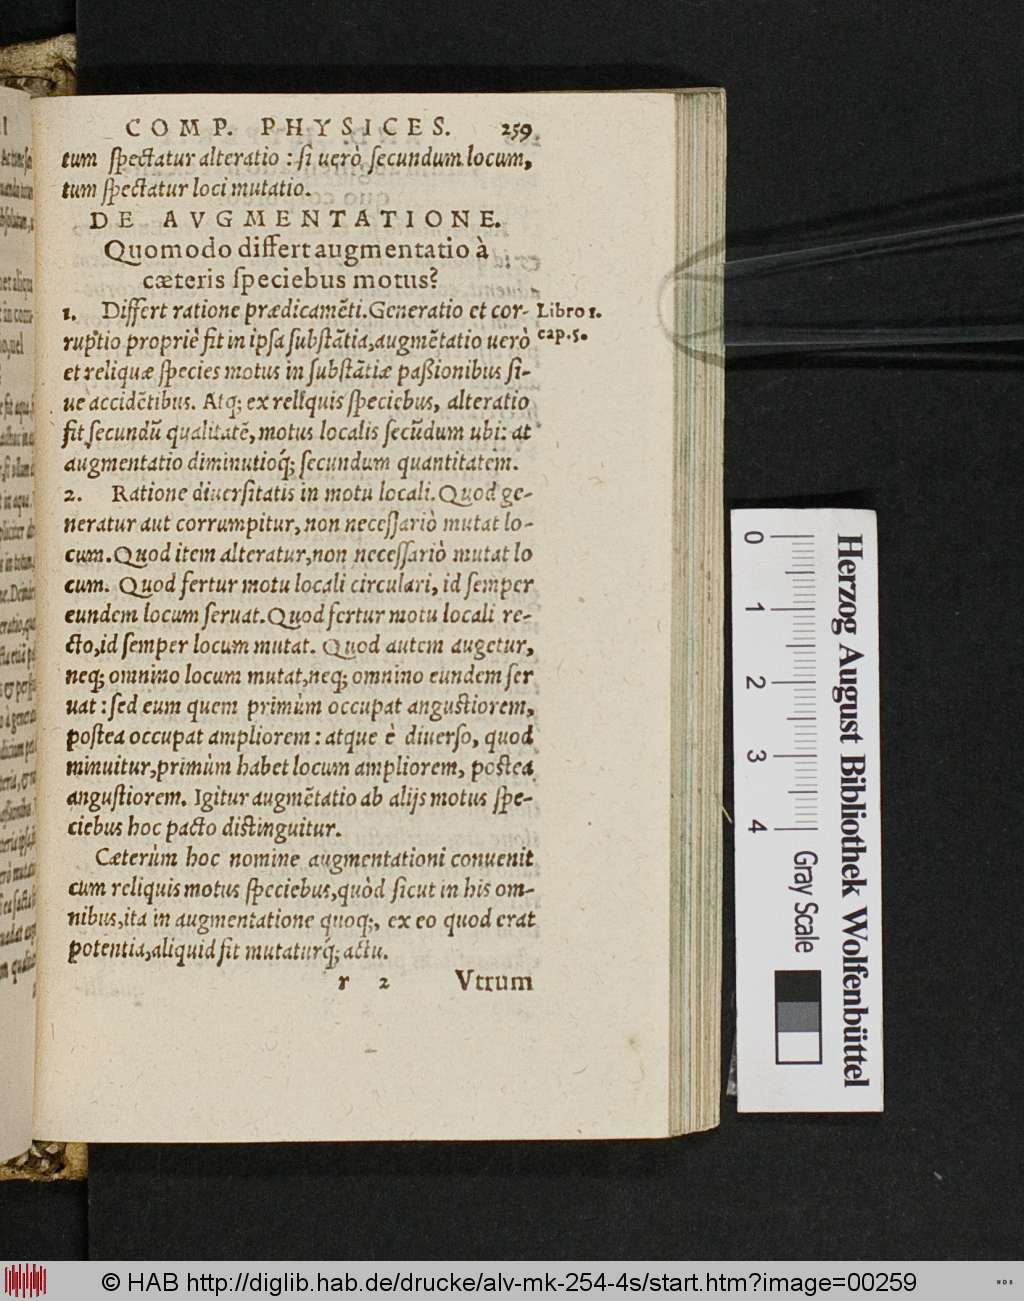 COMP. PHYSICES. 259
tum spectatur alteratio : si uerò secundum locum,
tum spectatur loci mutatio.
DE AVGMENTATIONE.
Quomodo differt augmentatio à
cæteris speciebus motus?
1. Differt ratione prædicamẽti. Generatio et cor-
Libro 1.
cap. 5.
ruptio propriè fit in ipsa substãtia, augmẽtatio uerò
et reliquæ species motus in substãtiæ paßionibus si-
ue accidẽtibus. Atq; ex reliquis speciebus, alteratio
fit secundũ qualitatẽ, motus localis secũdum ubi: at
augmentatio diminutioq́; secundum quantitatem.
2. Ratione diuersitatis in motu locali. Quod ge-
neratur aut corrumpitur, non necessariò mutat lo-
cum. Quod item alteratur, non necessariò mutat lo
cum. Quod fertur motu locali circulari, id semper
eundem locum seruat. Quod fertur motu locali re-
cto, id semper locum mutat. Quod autem augetur,
neq; omnino locum mutat, neq; omnino eundem ser
uat : sed eum quem primùm occupat angustiorem,
postea occupat ampliorem : atque è diuerso, quod
minuitur, primùm habet locum ampliorem, postea
angustiorem. Igitur augmẽtatio ab alijs motus spe-
ciebus hoc pacto distinguitur.
Cæterùm hoc nomine augmentationi conuenit
cum reliquis motus speciebus, quòd sicut in his om-
nibus, ita in augmentatione quoq;, ex eo quod erat
potentia, aliquid fit mutaturq́; actu.
r 2 Vtrum
0 1 2 3 4
Gray Scale
Herzog August Bibliothek Wolfenbüttel
© HAB http://diglib.hab.de/drucke/alv-mk-254-4s/start.htm?image=00259